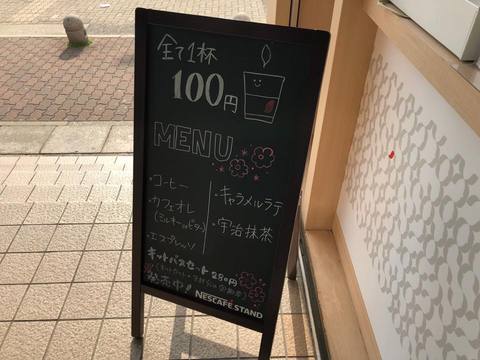 全て1杯
100円
MENU
・コーヒー
・カフェオレ
(ミルキー or ビター)
・エスプレッソ
・キャラメルラテ
・宇治抹茶
キットパスセット 280円
発売中!
NESCAFÉ STAND